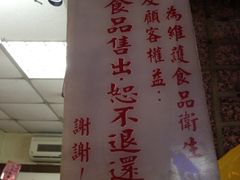 為維護食品衛生
及顧客權益：
食品售出，恕不退還
謝謝！